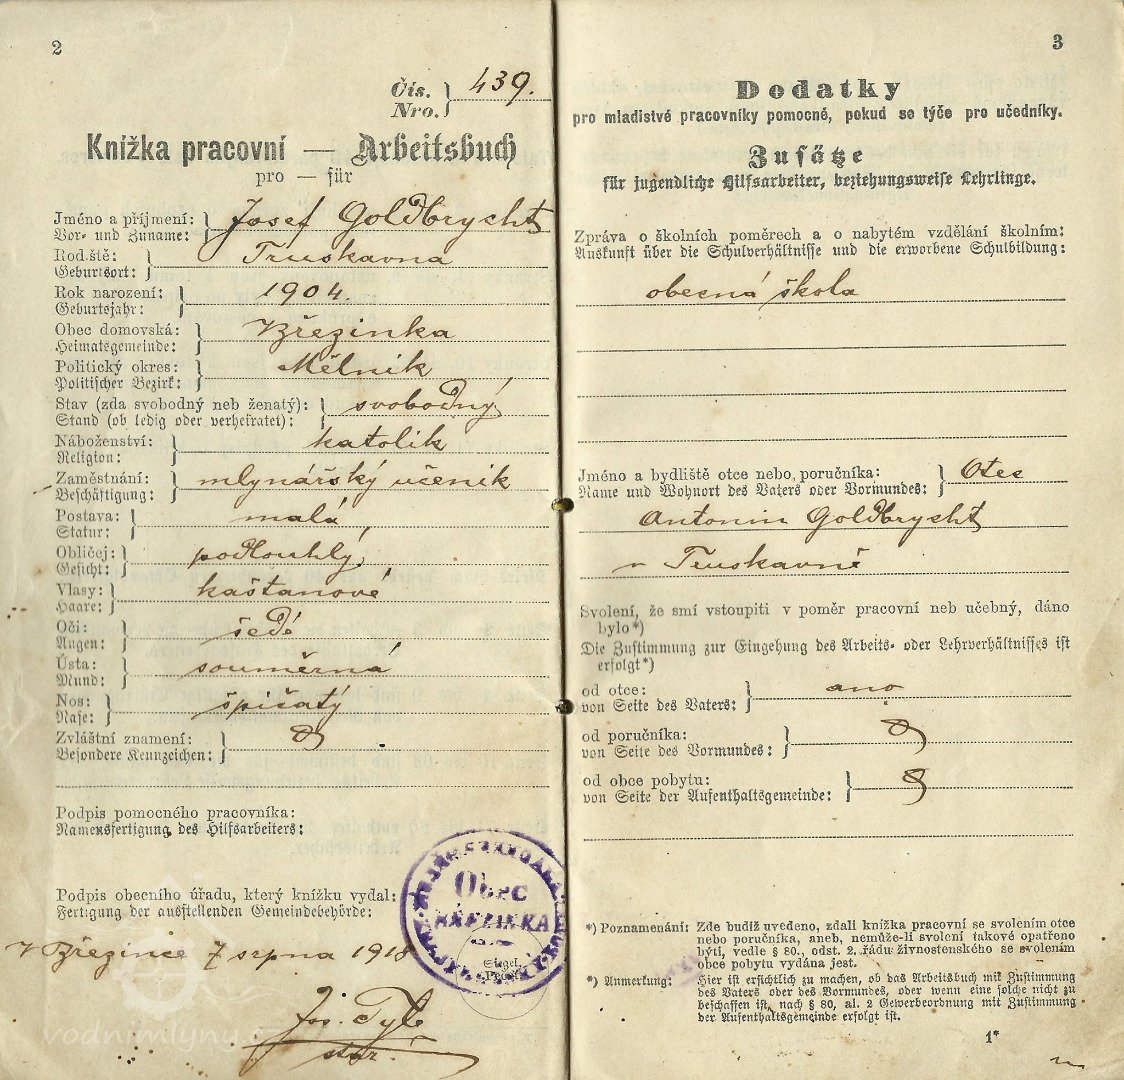 2
Čís. 439.
Nro.
Knížka pracovní — Arbeitsbuch
pro — für
Jméno a příjmení: Josef Goldbrycht
Vor- und Zuname:
Rodiště: Truskavna
Geburtsort:
Rok narození: 1904.
Geburtsjahr:
Obec domovská: Březinka
Heimatsgemeinde:
Politický okres: Mělník
Politischer Bezirk:
Stav (zda svobodný neb ženatý): svobodný
Stand (ob ledig oder verheiratet):
Náboženství: katolík
Religion:
Zaměstnání: mlynářský učeník
Beschäftigung:
Postava: malá
Statur:
Obličej: podlouhlý
Gesicht:
Vlasy: kaštanové
Haare:
Oči: šedé
Augen:
Ústa: souměrná
Mund:
Nos: špičatý
Nase:
Zvláštní znamení:
Besondere Kennzeichen:
Podpis pomocného pracovníka:
Namensfertigung des Hilfsarbeiters:
Podpis obecního úřadu, který knížku vydal:
Fertigung der ausstellenden Gemeindebehörde:
Obec
Březinka
Siegel.
V Březince 7 srpna 1918
Jos. Tyle
star.
vodnimlyny
3
Dodatky
pro mladistvé pracovníky pomocné, pokud se týče pro učedníky.
Zusätze
für jugendliche Hilfsarbeiter, beziehungsweise Lehrlinge.
Zpráva o školních poměrech a o nabytém vzdělání školním:
Auskunft über die Schulverhältnisse und die erworbene Schulbildung:
obecná škola
Jméno a bydliště otce nebo poručníka: Otec
Name und Wohnort des Vaters oder Vormundes:
Antonin Goldbrycht
v Truskavně
Svolení, že smí vstoupiti v poměr pracovní neb učebný, dáno
bylo*)
Die Zustimmung zur Eingehung des Arbeits- oder Lehrverhältnisses ist
erfolgt*)
od otce: ano
von Seite des Vaters:
od poručníka:
von Seite des Vormundes:
od obce pobytu:
von Seite der Aufenthaltsgemeinde:
*) Poznamenání: Zde budiž uvedeno, zdali knížka pracovní se svolením otce
nebo poručníka, aneb, nemůže-li svolení takové opatřeno
býti, vedle § 80., odst. 2. řádu živnostenského se svolením
obce pobytu vydána jest.
*) Anmerkung: Hier ist ersichtlich zu machen, ob das Arbeitsbuch mit Zustimmung
des Vaters oder des Vormundes, oder wenn eine solche nicht zu
beschaffen ist, nach § 80, al. 2 Gewerbeordnung mit Zustimmung
der Aufenthaltsgemeinde erfolgt ist.
1*